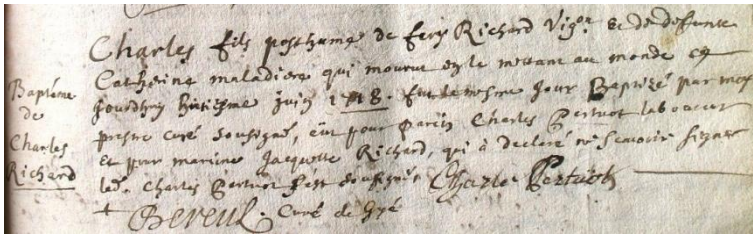 Baptéme
de
Charles
Richard
Charles fils posthume de fery Richard Vigon et de deffunte
Catherine maladiere qui mourut en le mettant au monde ce
jourdhuy huitiéme juin 1718. fut le mesme jour Baptizé par moy
prestre curé sousigné, eut pour parin Charles Pertuot laboureur
et pour marinne Jacquette Richard, qui à declaré ne scavoir signer
led. Charles Pertuot s'est sousigné. Charle Pertuot
Bereul. Curé de Gyé